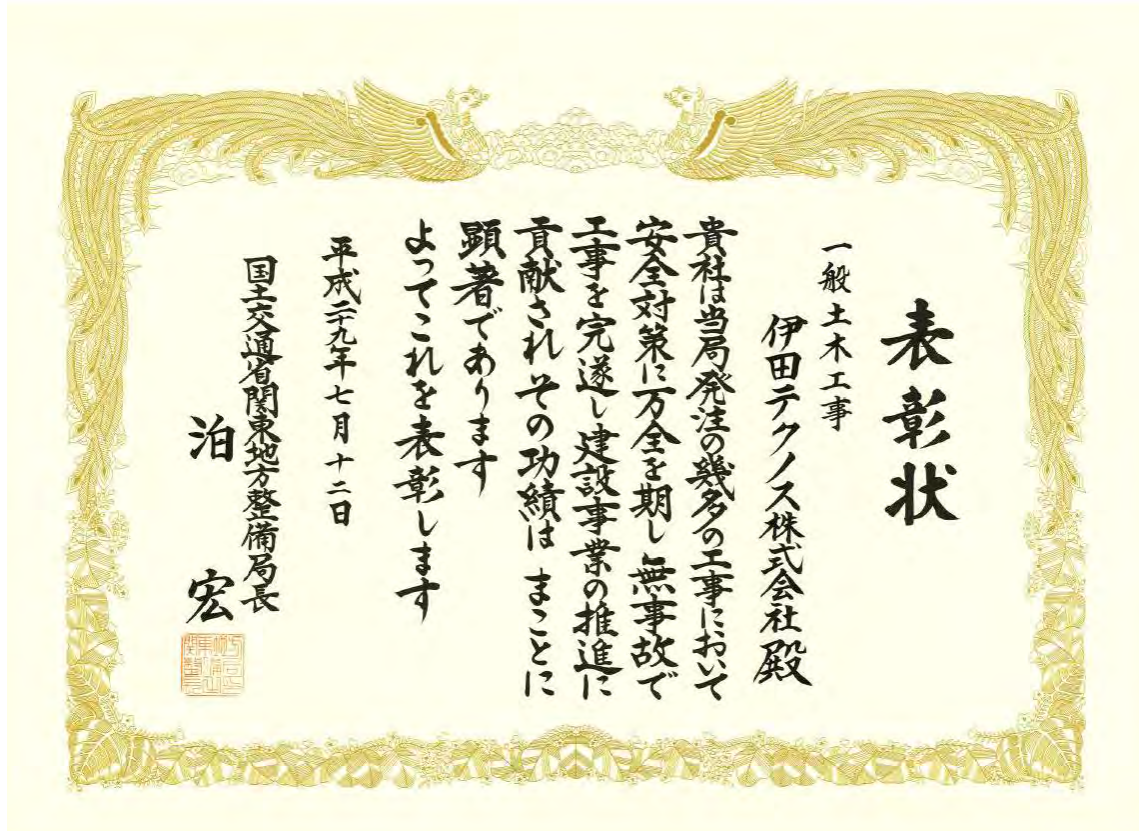 表彰状
一般土木工事
伊田テクノス株式会社殿
貴社は当局発注の幾多の工事において
安全対策に万全を期し無事故で
工事を完遂し建設事業の推進に
貢献されその功績は まことに
顕著であります
よってこれを表彰します
平成二十九年七月十二日
国土交通省関東地方整備局長
泊 宏